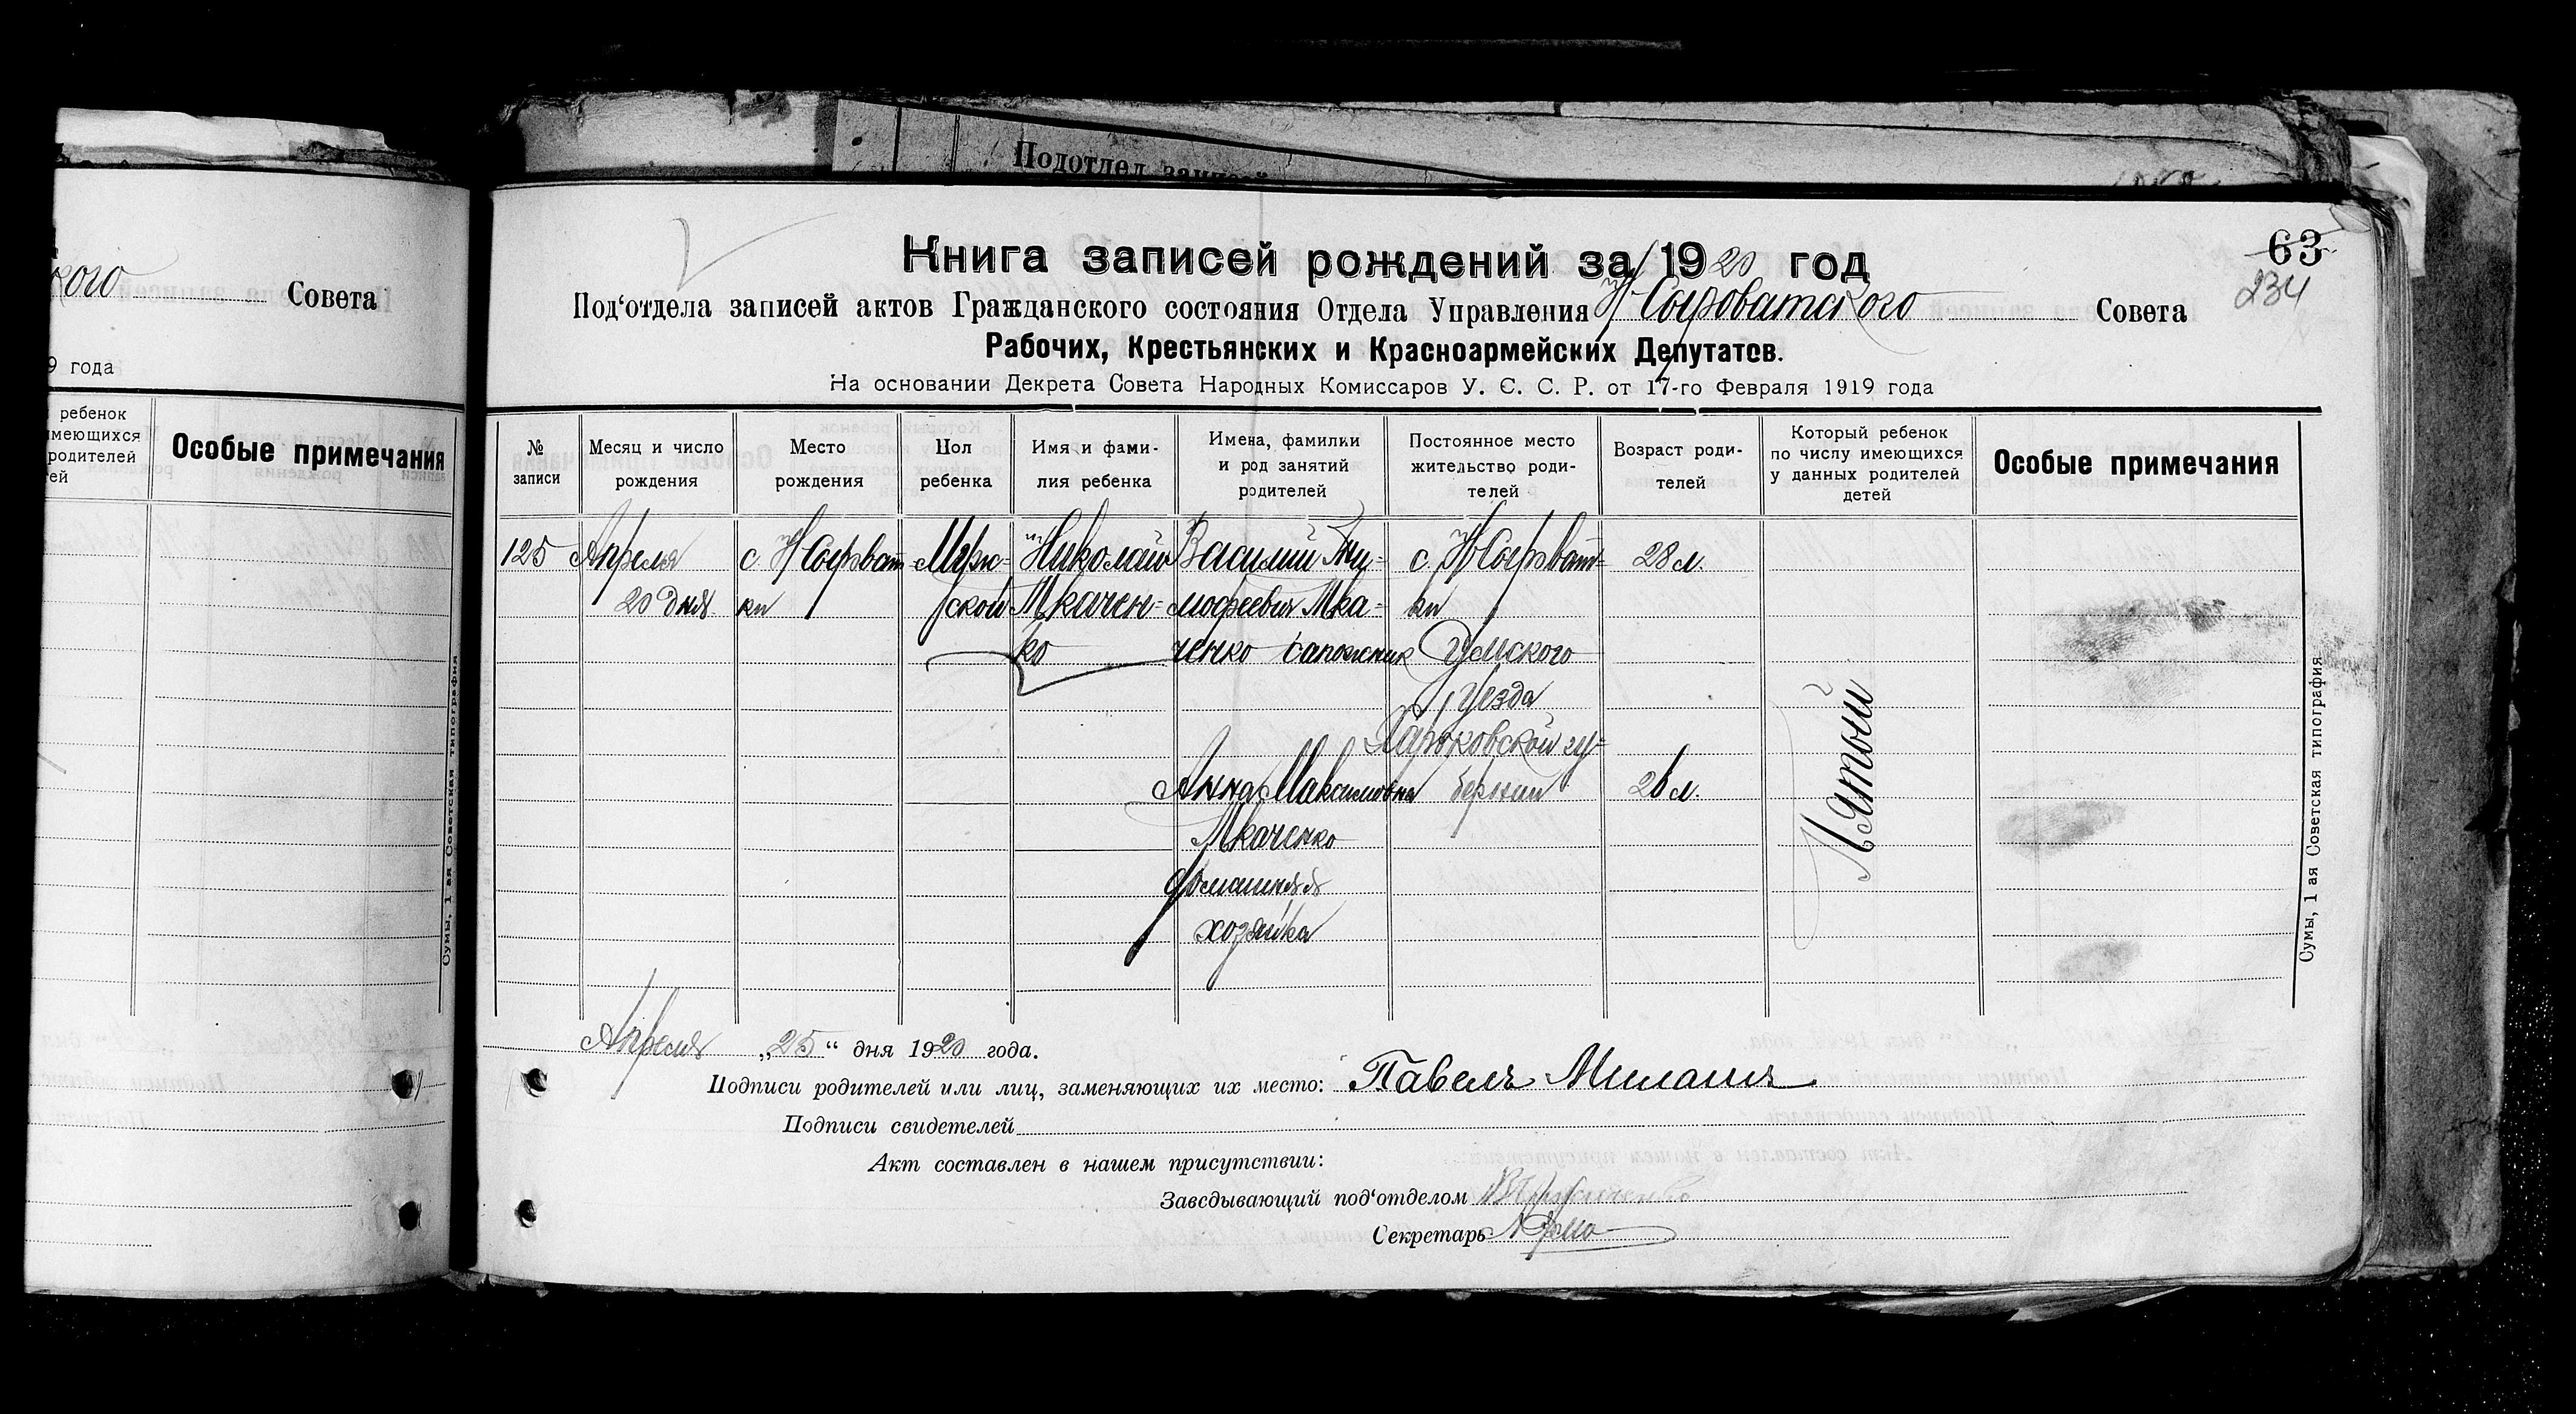 Подотдел записей
кого Совета
9 года
ребенок
имеющихся
родителей
тей
Особые примечания
Сумы, 1 ая Советская типография
63
234
Книга записей рождений за 1920 год
Под‘отдела записей актов Гражданского состояния Отдела Управления Н Сыроватского Совета
Рабочих, Крестьянских и Красноармейских Депутатов.
На основании Декрета Совета Народных Комиссаров У. С. С. Р. от 17-го Февраля 1919 года
№ записи
Месяц и число рождения
Место рождения
Пол ребенка
Имя и фами-
лия ребенка
Имена, фамилии
и род занятий
родителей
Постоянное место
жительство роди-
телей
Возраст роди-
телей
Который ребенок
по числу имеющихся
у данных родителей
детей
Особые примечания
125
Апреля
20 дня
с. Н Сыроват
ки
Муж-
ской
Николай
Ткачен-
ко
Василий Ти-
мофеевич Тка-
ченко сапожник
Анна Максимовна
Ткаченко
домашняя
хозяйка
с. Н Сыроват-
ки
Сумского
уезда
Харьковской гу-
бернии
28 л.
26 л.
Пятый
Сумы, 1 ая Советская типография
Апреля „25“ дня 1920 года.
Подписи родителей или лиц, заменяющих их место: Павелъ
Подписи свидетелей
Акт составлен в нашем присутствии:
Заведывающий под‘отделом
Секретарь